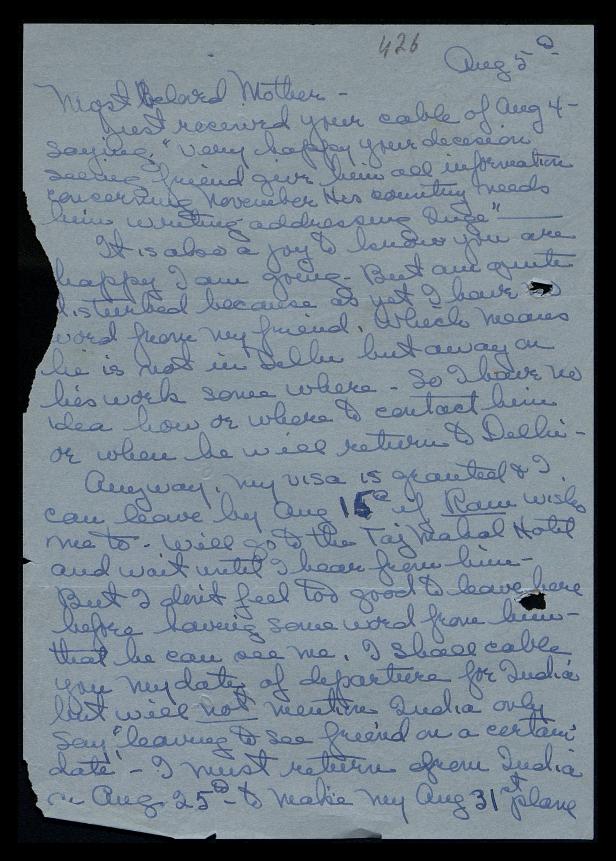 426
Aug 5th
Most Belovd Mother -
Just received your cable of Aug 4 -
saying, "very happy your decision
seeing friend give him all information
concerning November His country needs
him writing addressing Inge"
It is also a joy to know you are
happy I am going. But am quite
disturbed because as yet I have no
word from my friend. Which means
he is not in Delhi but away on
his work some where - So I have no
idea how or where to contact him
or when he will return to Delhi -
Anyway, my visa is granted & I
can leave by Aug 15th if Ram wishs
me to. Will go to the Taj Mahal Hotel
and wait until I hear from him -
But I don't feel too good to leave here
before having some word from him -
that he can see me. I shall cable
you my date of departure for India
but will not mention India only
say "leaving to see friend on a certain
date" - I must return from India
on Aug. 25th - to make my Aug 31st plane